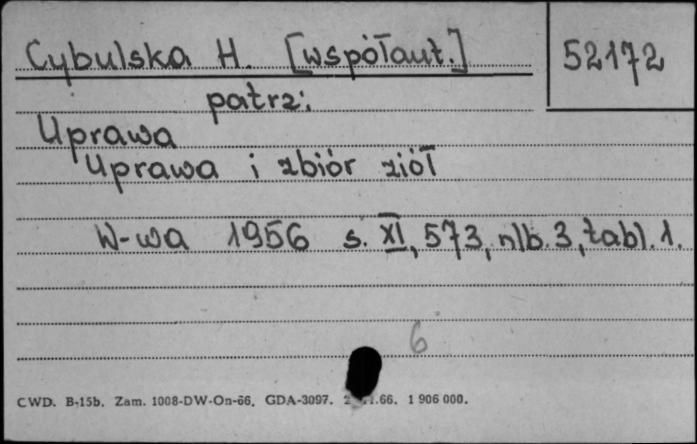 Cybulska H. [współaut.] 52172
patrz:
Uprawa
Uprawa i zbiór ziół
W-wa 1956 s. XI, 573, nlb. 3, tabl. 1.
6
CWD. B-15b. Zam. 1008-DW-On-66. GDA-3097. .66. 1 906 000.